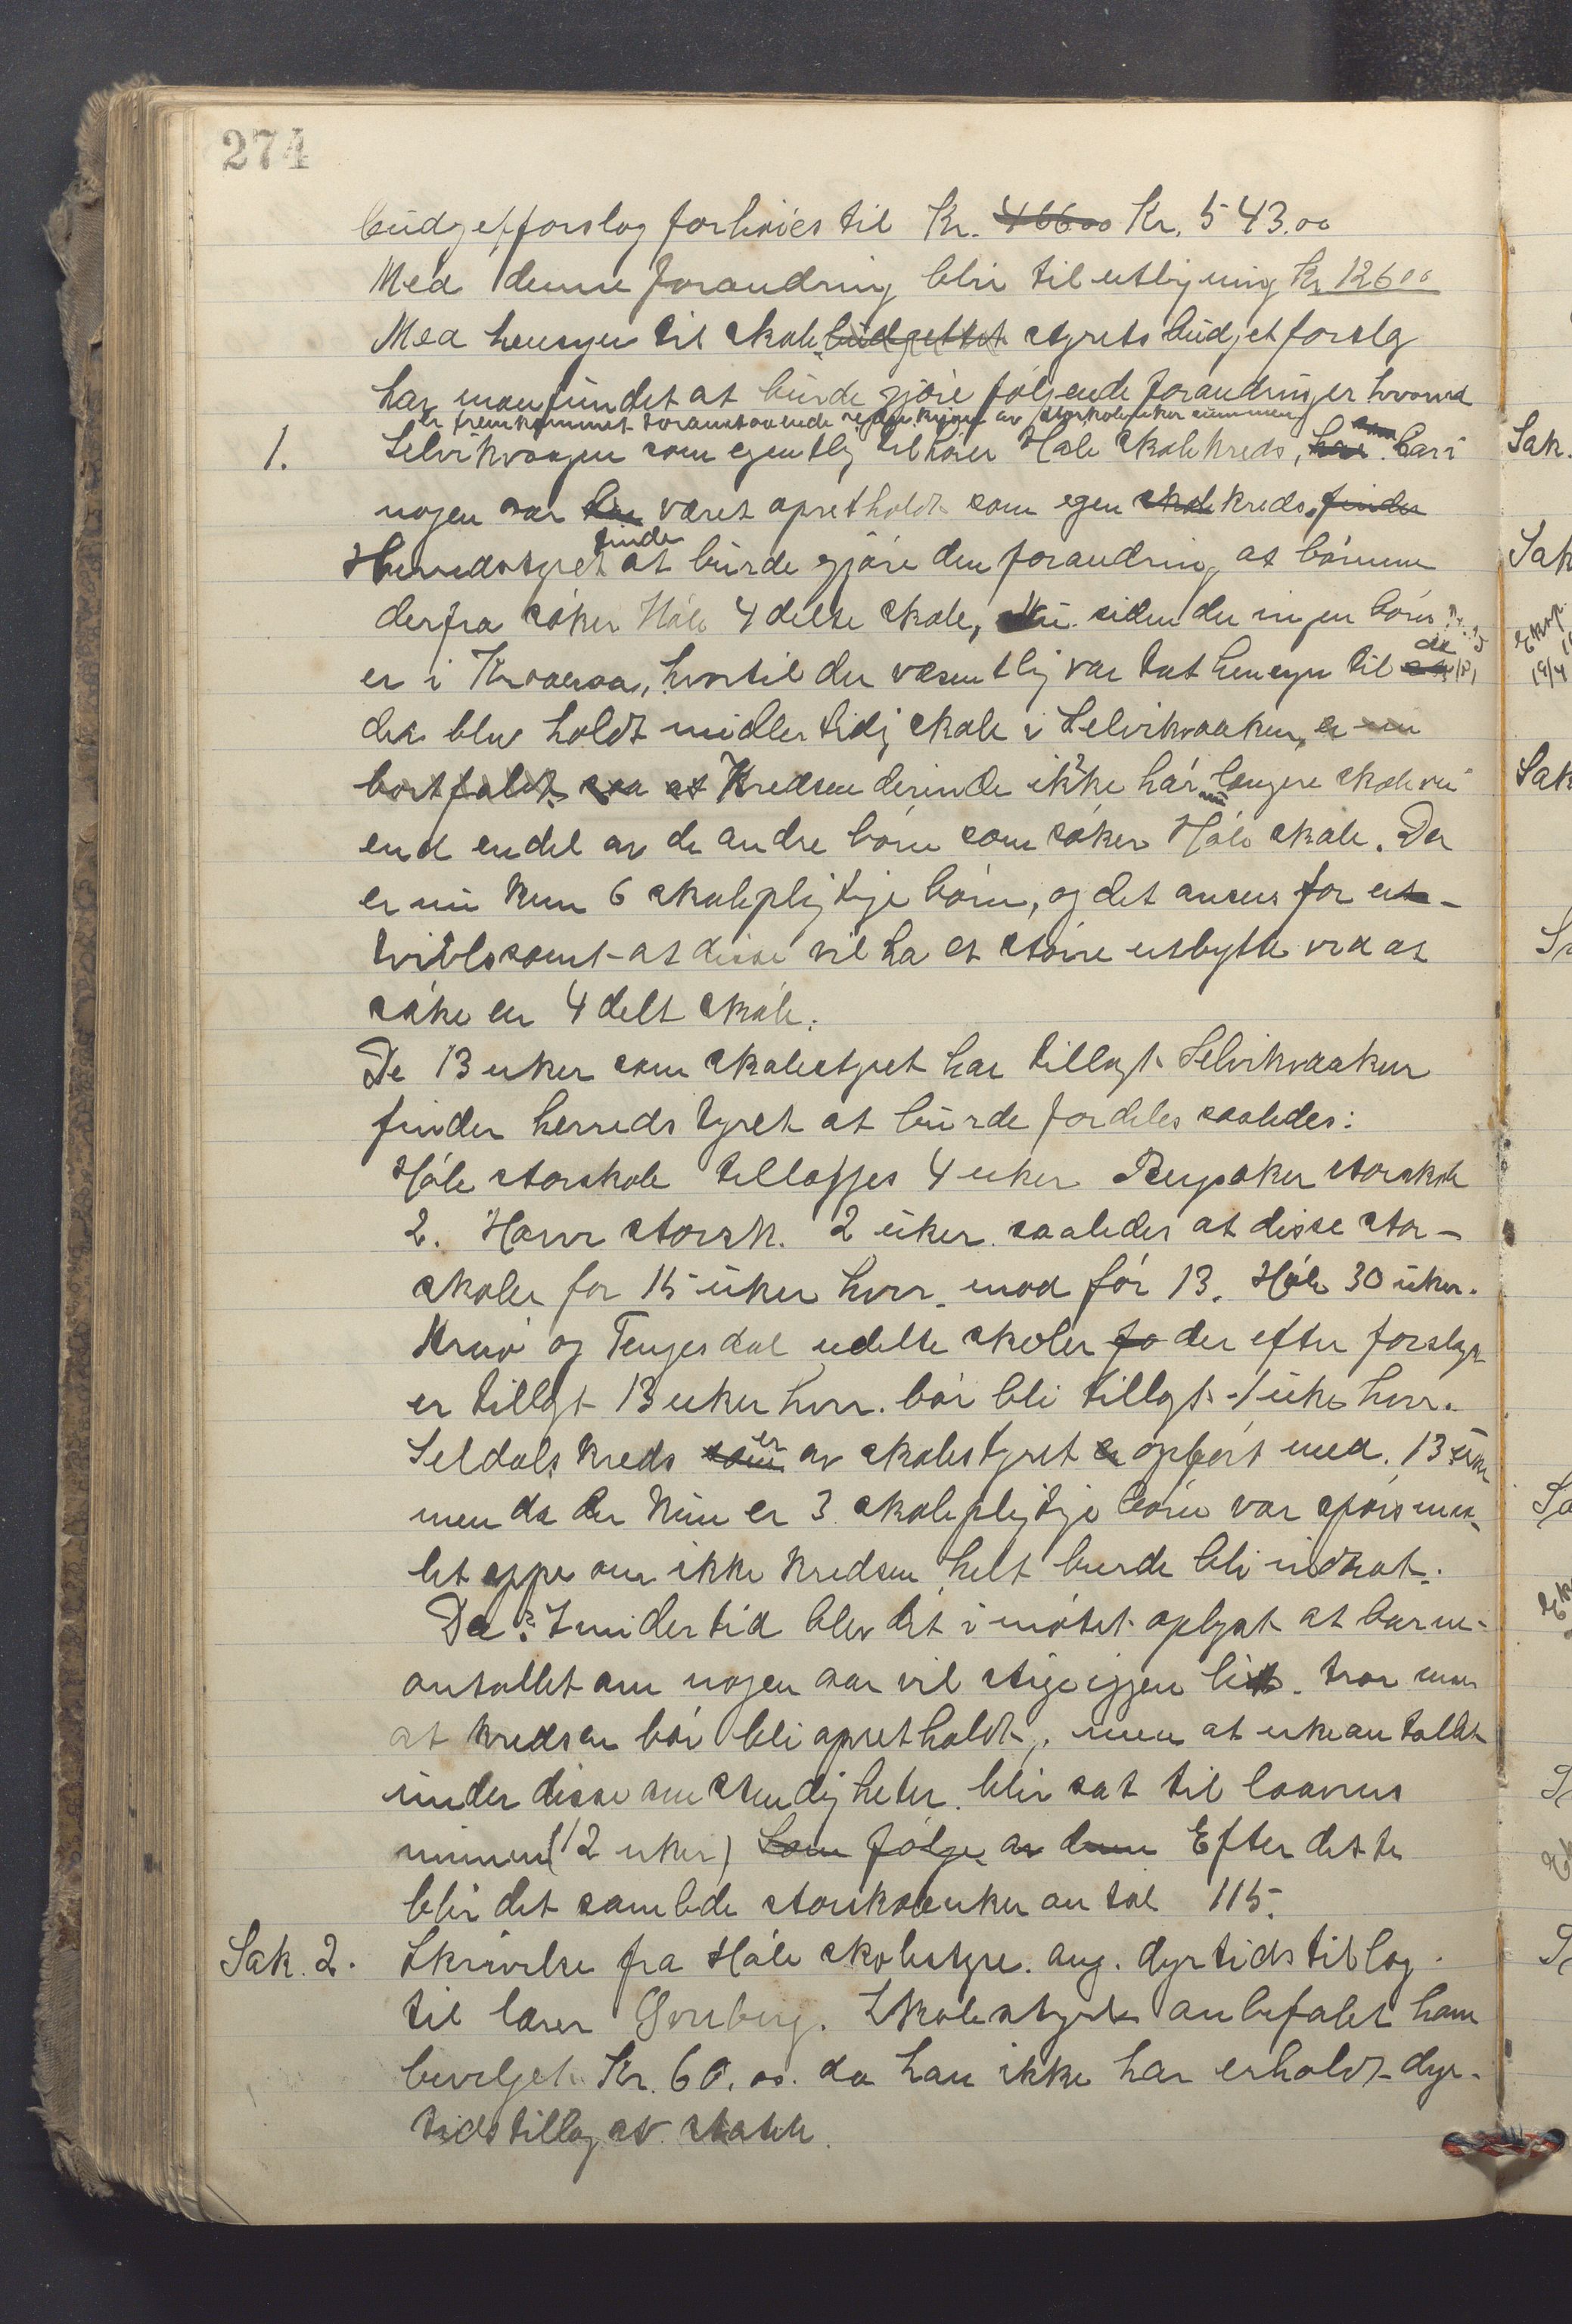 274
budgetforslag forhöies til Kr. 466.00 Kr. 543.00
Med denne forandring blir til utligning Kr 12600
Med hensyn til skolebudgettet styrets budjetforslg
har man fundet at burde gjöre fölgende forandringer hvorved
er fremkommet foranstaaende av storskoleuker summen
1. Selvikvaagen som egentlig tilhörer Höle skolekreds, har har i
nogen aar været opretholdt som egen skolekreds, finder
Herredstyret finder at burde gjöre den forandring, at börnene
derfra söker Höle 4 delte skole, Nu siden der ingen börn
er i Kraaeraa, hvortil der væsentlig var tat hensyn til da
det blev holdt midlertidig skole i Selvikvaaken, er nu
bortfaldt, saa at Kredsen derinde ikke har nu længere skolevei
end endel av de andre börn som söker Höle skole. Der
er nu kun 6 skolepligtige börn, og det ansees for ut-
tvilsomt at disse vil ha et större utbytte ved at
söke en 4 delt skole.
De 13 uker som skolestyret har tillagt Selvikvaaken
finder herredstyret at burde fordeles saaledes:
Höle storskole tillægges 4 uker storskole
2. storsk. 2 uker saaledes at disse stor-
skoler faar 15 uker hver mod för 13. Höle 30 uker.
og Tengesdal udelte skoler fo der efter forslage
er tillagt 13 uker hver. bör bli tillagt 1 uke hver.
Seldals kreds som er av skolestyret er opfört med 13 uker
men da der kun er 3 skolepligtige börn var spörsmaa-
let oppe om ikke kredsen helt burde bli inddrat.
Da imidlertid blev det i mötet oplyst at barne-
antallet om nogen aar vil stige igjen litt. tror man
at kredsen bör bli opretholdt, men at ukeantallet
under disse omstendigheter blir sat til lovens
minimum (12 uker) Som fölge av denne Efter dette
blir det samlede storskoleuker antal 115.
Sak. 2. Skrivelse fra Höle skolestyre ang. dyrtidstillæg
til lærer Skolestyret anbefalet ham
bevilget Kr. 60.00. da han ikke har erholdt dyr-
tidstillæg av staten.
Sak.
Sak
Sak